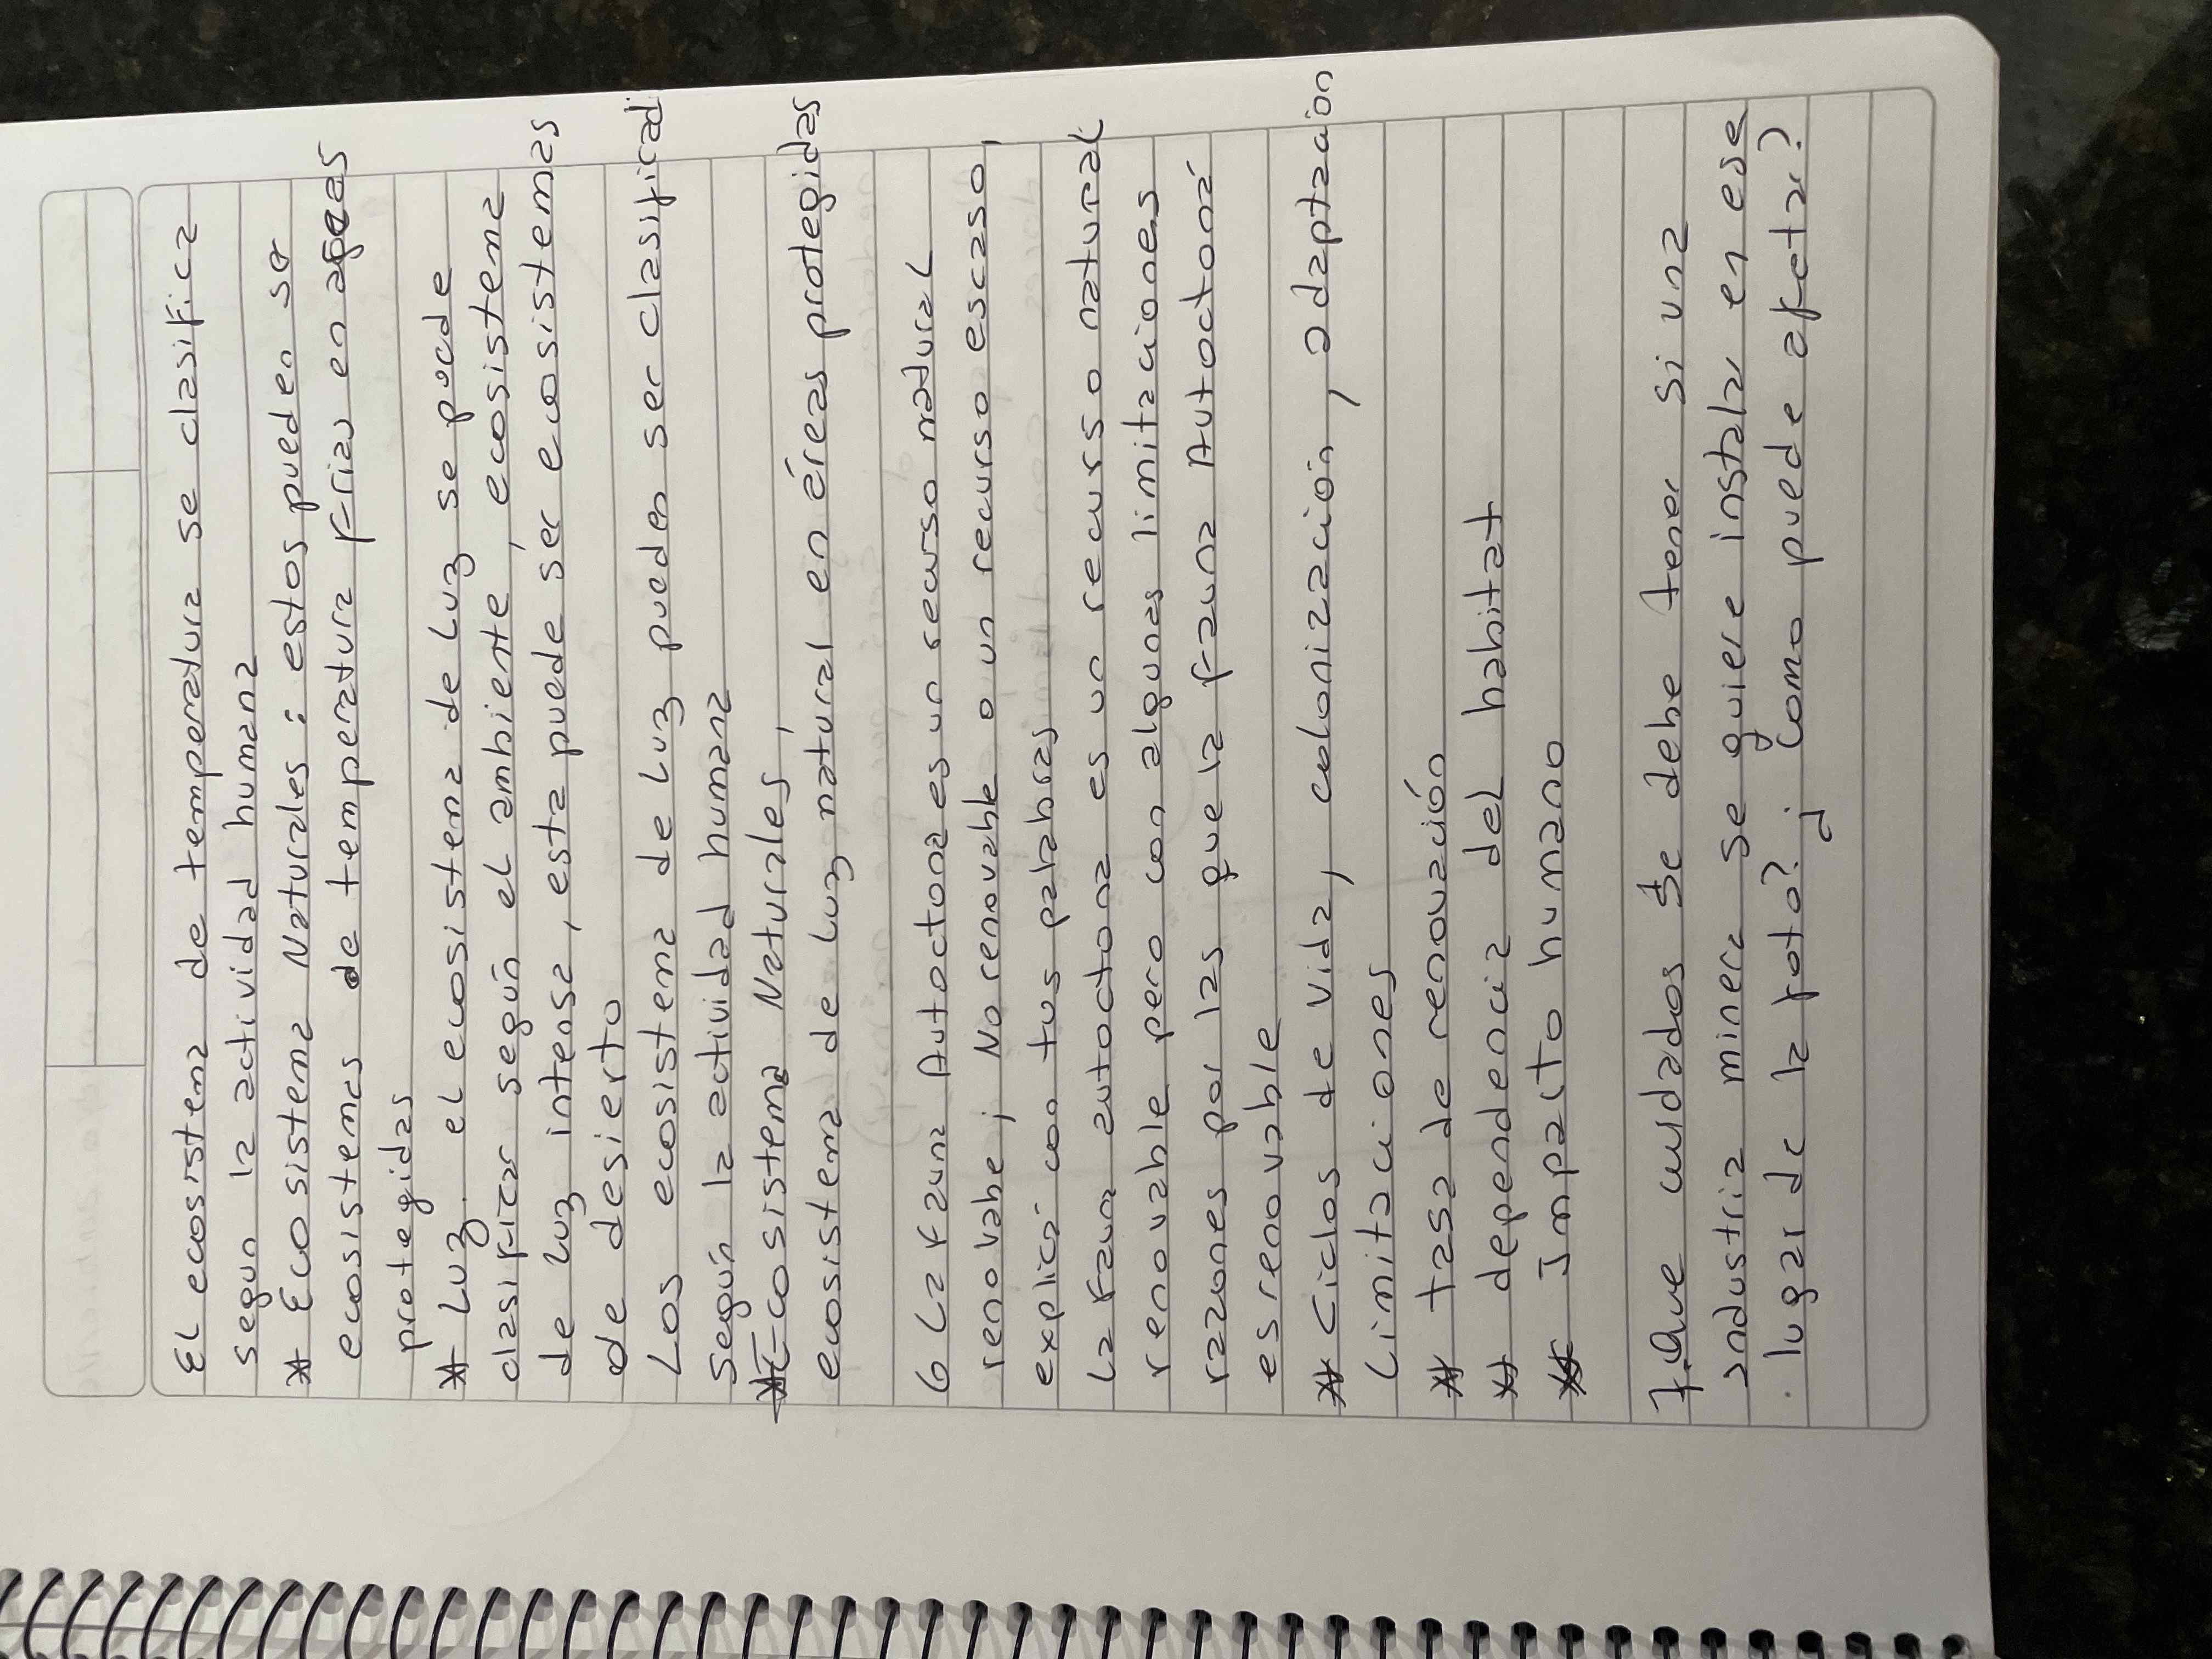 El ecosistema de temperatura se clasifica
segun la actividad humana
* Ecosistema Naturales: estos pueden ser
ecosistemas de temperatura frias en areas
protegidas
* Luz. el ecosistema de Luz se puede
clasificar según el ambiente, ecosistema
de luz intensa, esta puede ser ecosistemas
de desierto
Los ecosistema de Luz pueden ser clasificad
según la actividad humana
* Ecosistema Naturales,
ecosistema de luz natural en éreas protegidas
6 La fauna Autoctona es un recurso natural
renovabe, No renovable o un recurso escaso,
explicá con tus palabras
La fauna autoctona es un recurso natural
renovable pero con algunas limitaciones
razones por las que la fauna Autoctoná
es renovable
* Ciclos de vida, colonización, adaptación
Limitaciones
* tasa de renovación
* dependencia del habitat
* Impacto humano
7. Que cuidados se debe tener si una
industria minera se quiere instalar en ese
lugar de la foto? ¿Como puede afectar?